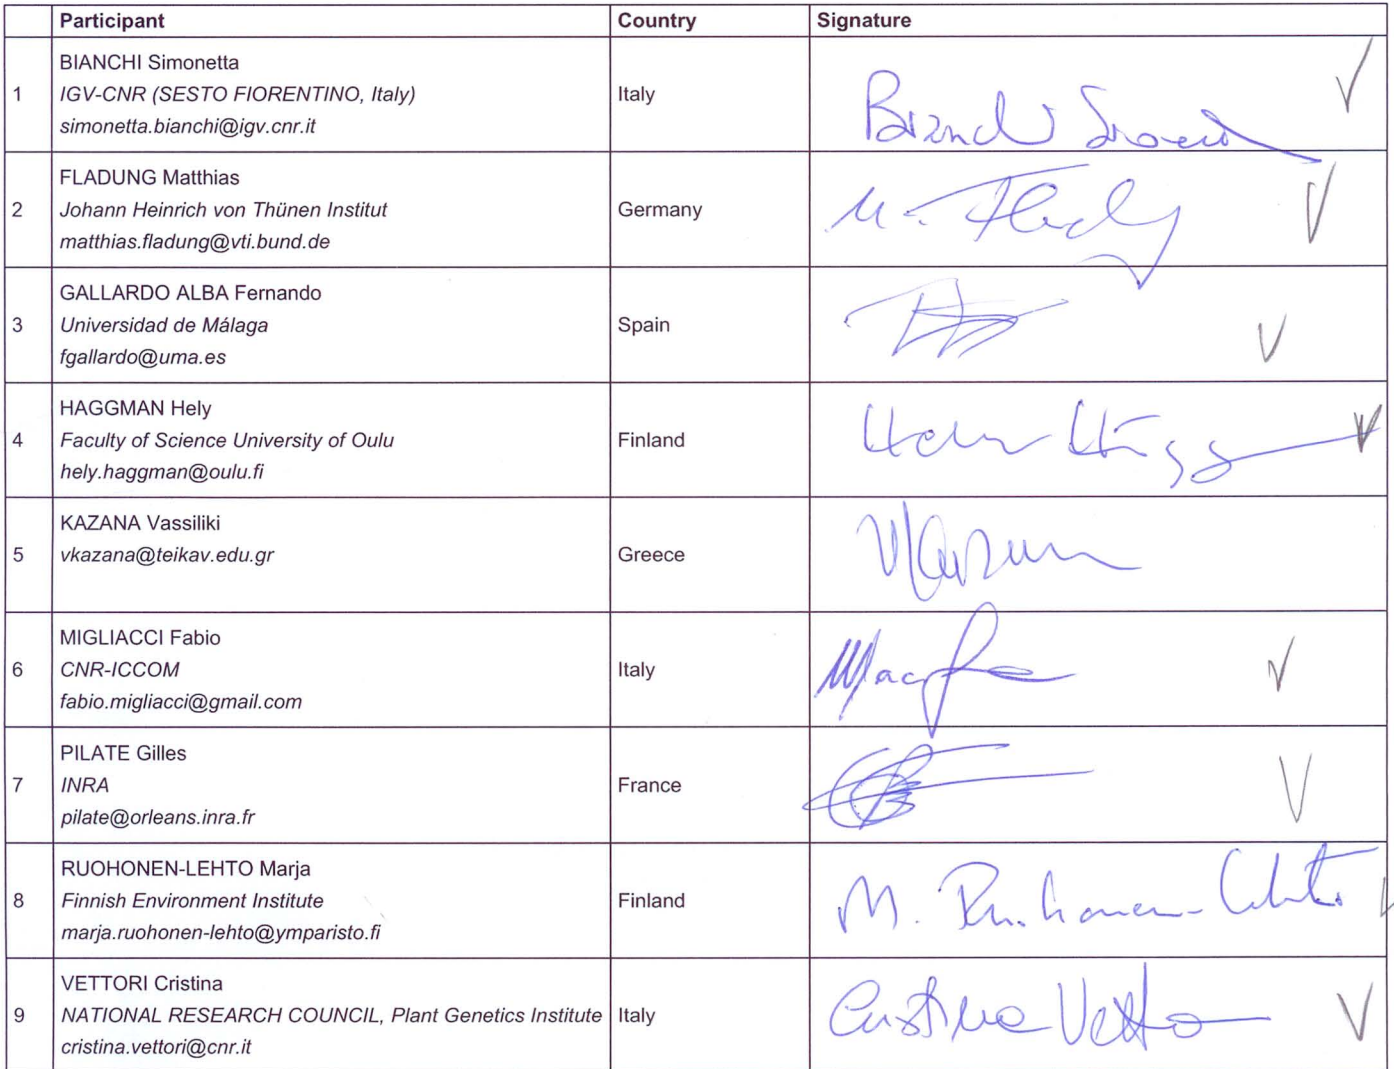 Participant Country Signature
1
BIANCHI Simonetta
IGV-CNR (SESTO FIORENTINO, Italy)
simonetta.bianchi@igv.cnr.it
Italy
2
FLADUNG Matthias
Johann Heinrich von Thünen Institut
matthias.fladung@vti.bund.de
Germany
3
GALLARDO ALBA Fernando
Universidad de Málaga
fgallardo@uma.es
Spain
4
HAGGMAN Hely
Faculty of Science University of Oulu
hely.haggman@oulu.fi
Finland
5
KAZANA Vassiliki
vkazana@teikav.edu.gr
Greece
6
MIGLIACCI Fabio
CNR-ICCOM
fabio.migliacci@gmail.com
Italy
7
PILATE Gilles
INRA
pilate@orleans.inra.fr
France
8
RUOHONEN-LEHTO Marja
Finnish Environment Institute
marja.ruohonen-lehto@ymparisto.fi
Finland
M. Ruohonen-Lehto
9
VETTORI Cristina
NATIONAL RESEARCH COUNCIL, Plant Genetics Institute
cristina.vettori@cnr.it
Italy
Cristina Vetto